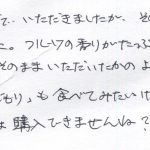 て、いただきましたが、そ
た。フルーツの香りがたっぷ
そのままいただいたかのよ
もり」も食べてみたいけ
は購入できませんね？